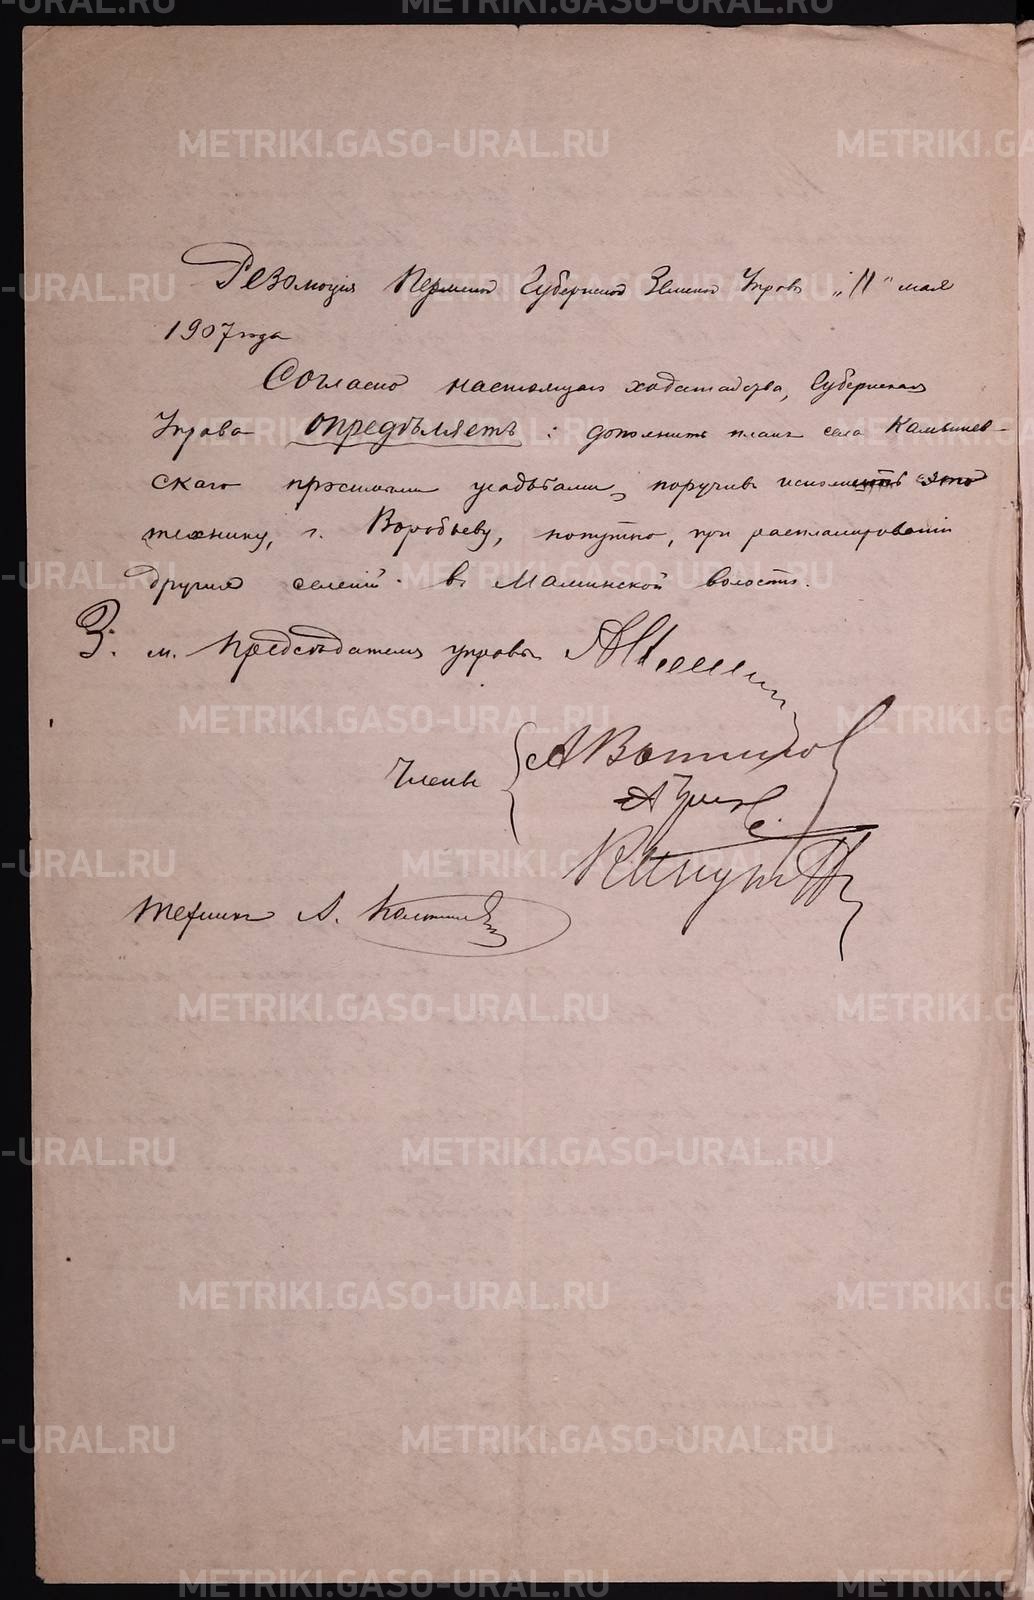 Резолюція Пермской Губернской Земской Управы „11" мая
1907 года
Согласно настоящаго ходатайства, Губернская
Управа опредѣляетъ: дополнить планъ села Камышев-
скаго просимыми усадьбами, поручивъ исполнить это
технику, г. Воробьеву, попутно, при распланированіи
другихъ селеній въ Маминской волости.
З. м. Предсѣдателя управы
Члены
Техникъ А.
METRIKI.GASO-URAL.RU